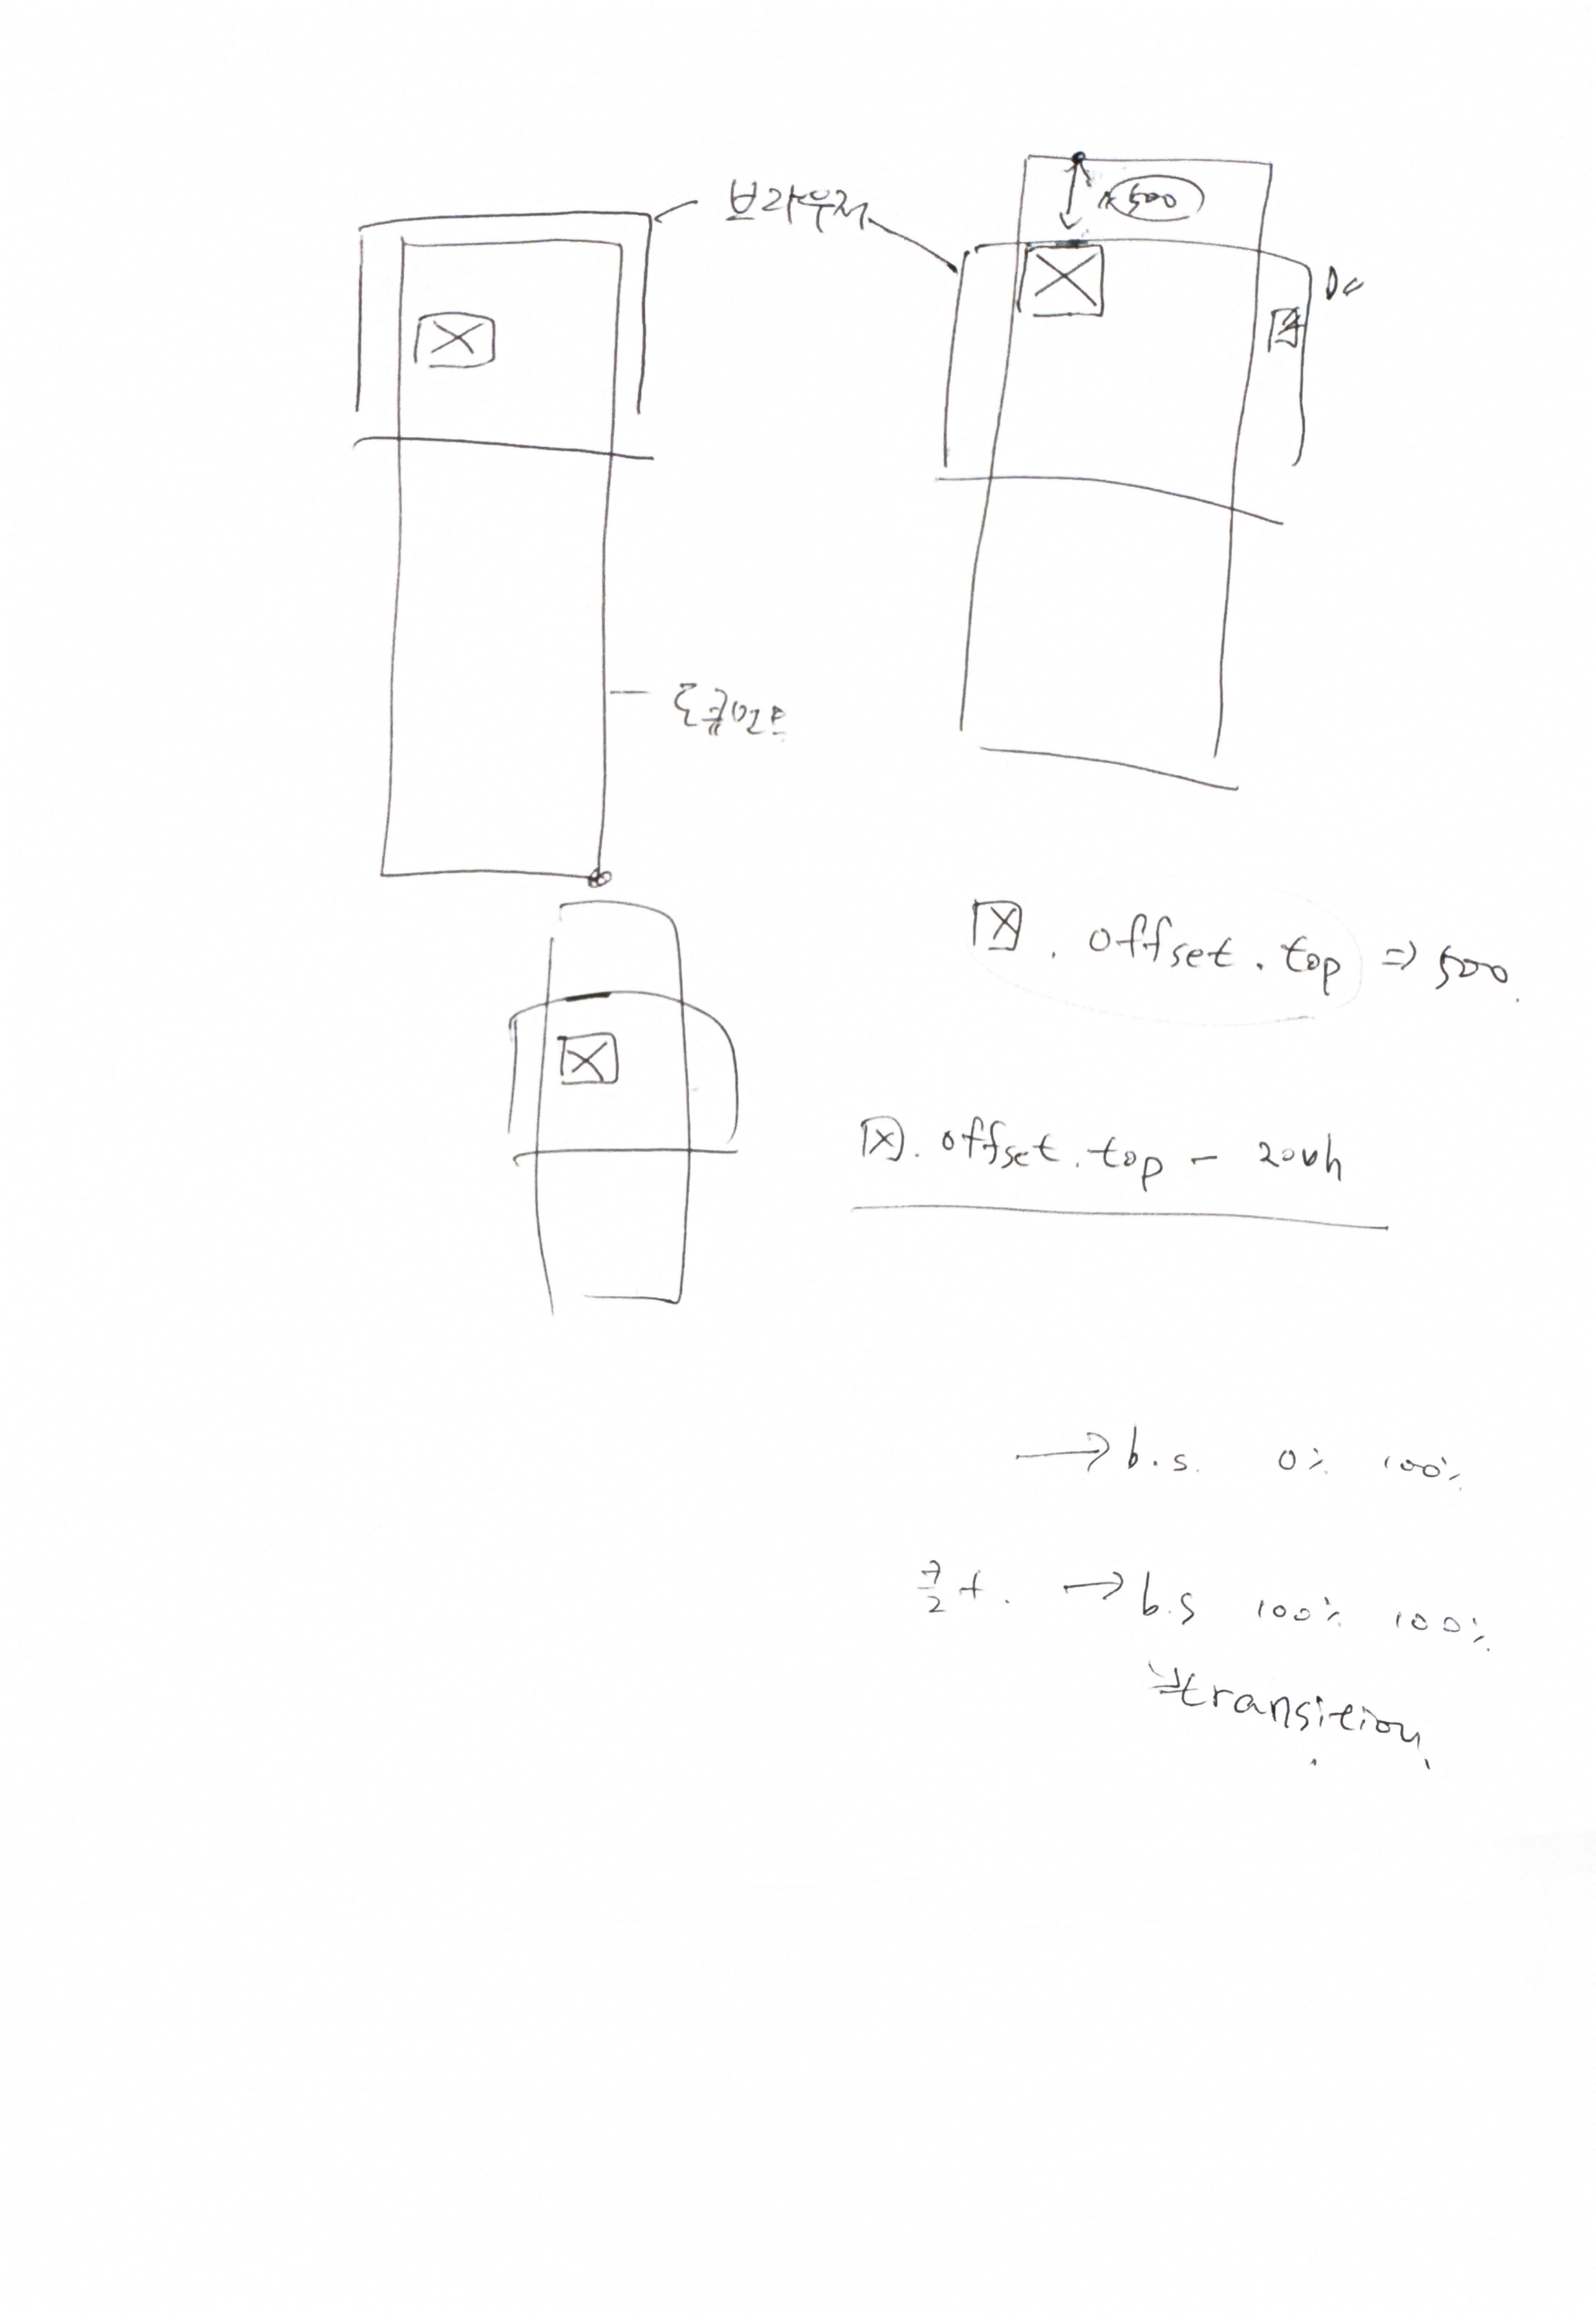 브라우저
500
. offset.top => 500.
. offset.top - 20vh
→ b.s. 0% 100%
→ b.s 100% 100%
transition